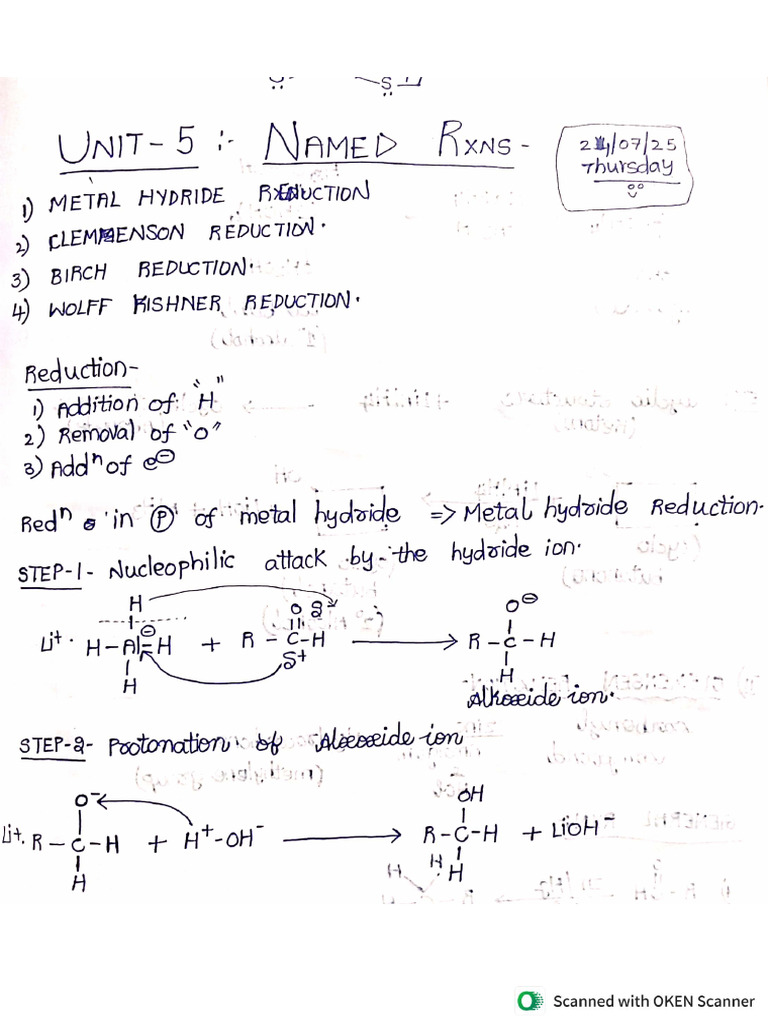 UNIT-5 :- NAMED RXNS -
24/07/25
Thursday
1) METAL HYDRIDE REDUCTION
2) CLEMMENSON REDUCTION.
3) BIRCH REDUCTION.
4) WOLFF KISHNER REDUCTION.
Reduction-
1) Addition of "H"
2) Removal of "O"
3) Addⁿ of e⊖
Redⁿ in Ⓟ of metal hydride => Metal hydride Reduction.
STEP-1- Nucleophilic attack by the hydride ion.
H O O⊖
Li⁺. H-Al⊖-H + R-C-H → R-C-H
H δ+ H
Alkoxide ion.
STEP-2- Protonation of Aloxide ion
O⁻ OH
Li⁺. R-C-H + H⁺-OH⁻ → R-C-H + LiOH⁻
H H H
Scanned with OKEN Scanner